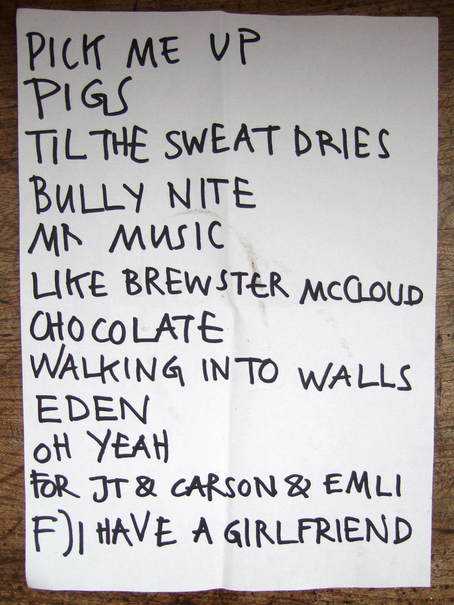 PICK ME UP
PIGS
TIL THE SWEAT DRIES
BULLY NITE
MR MUSIC
LIKE BREWSTER MCCLOUD
CHOCOLATE
WALKING INTO WALLS
EDEN
OH YEAH
FOR JT & CARSON & EMLI
F) I HAVE A GIRLFRIEND